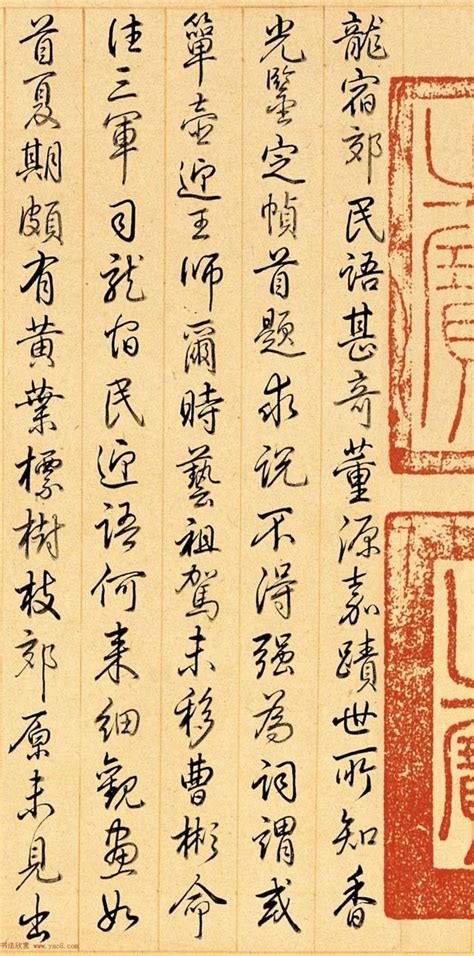 龍宿郊民語甚奇董源嘉蹟世所知香
光鑒定幀首題求説不得强為詞謂或
簞壺迎王師爾時藝祖駕未移曹彬命
往三軍司龍宿民迎語何来細觀畫如
首夏期頗有黃葉標樹枝郊原未見出
书法欣赏 www.yac8.com